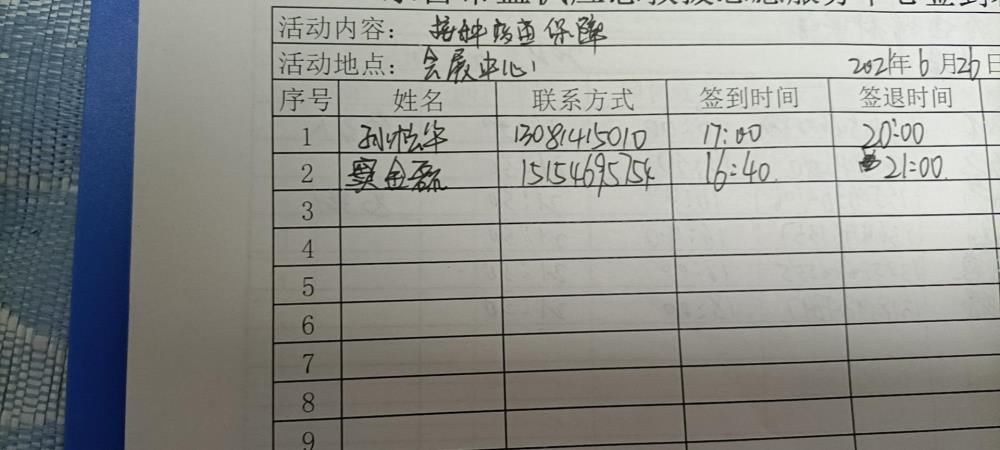 活动内容： 接种疫苗保障
活动地点： 会展中心 2021年6月26日
序号 姓名 联系方式 签到时间 签退时间
1 孙悦华 13081415010 17:00 20:00
2 窦金磊 15154695754 16:40 21:00
3
4
5
6
7
8
9